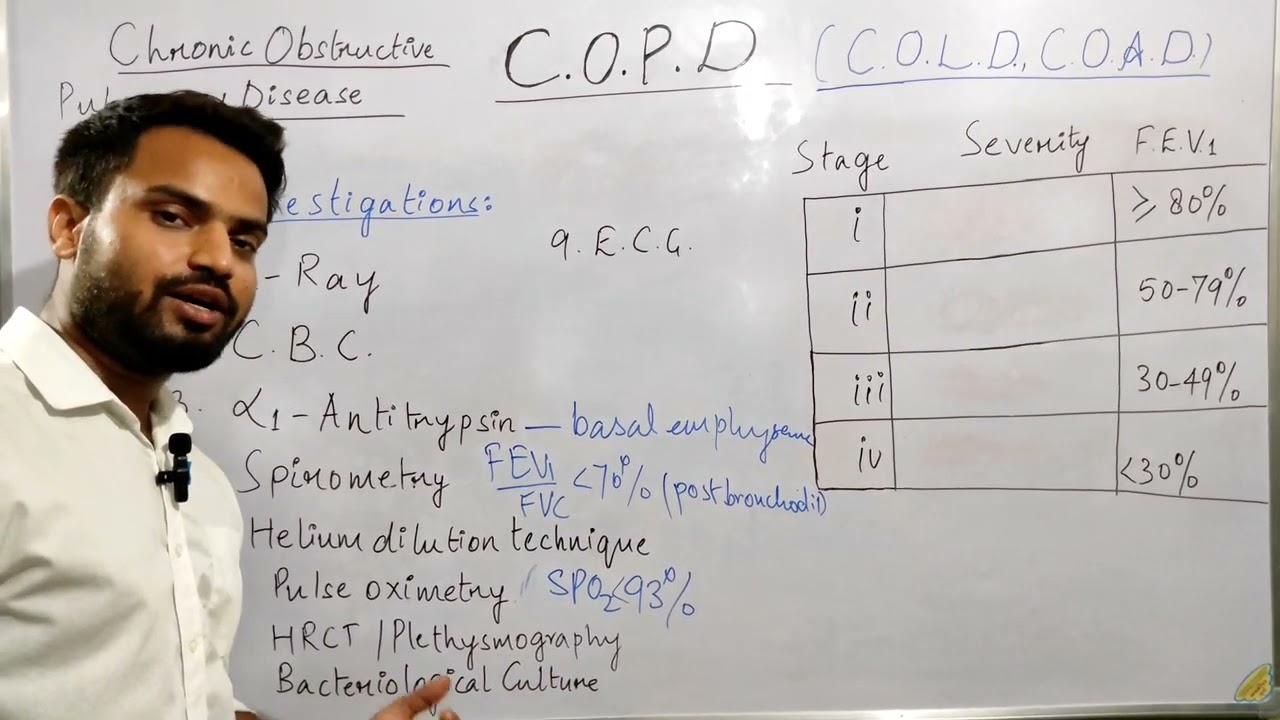 Chronic Obstructive
Disease
C.O.P.D
(C.O.L.D., C.O.A.D.)
estigations:
- Ray
C.B.C.
3. α1-Antitrypsin — basal emphysema
Spirometry FEV1/FVC <70% (postbronchodil)
Helium dilution technique
Pulse oximetry SPO2<93%
HRCT / Plethysmography
Bacteriological Culture
9. E.C.G.
Stage Severity F.E.V.1
i ≥ 80%
ii 50-79%
iii 30-49%
iv <30%